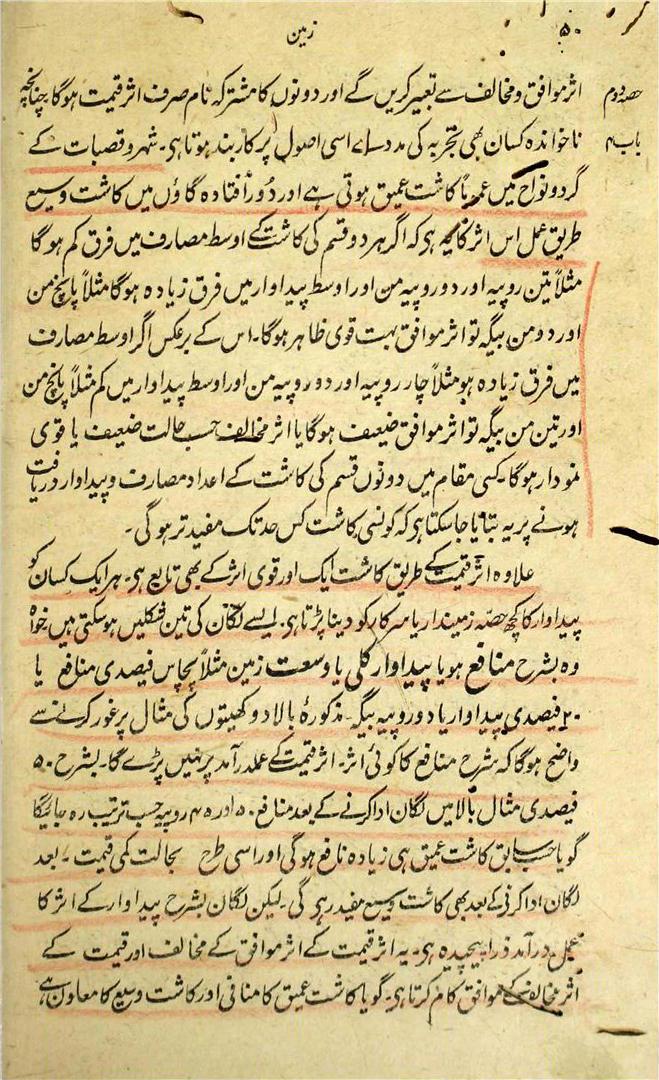 ۵۰
زمین
حصہ دوم
باب ۴
اثر موافق و مخالف سے تعبیر کریں گے اور دونوں کا مشترکہ نام صرف اثر قیمت ہوگا چنانچہ
ناخواندہ کسان بھی تجربہ کی مدد سے اسی اصول پر کاربند ہوتا ہی۔ شہر و قصبات کے
گرد و نواح میں عموماً کاشت عمیق ہوتی ہے اور دُور اُفتادہ گاؤں میں کاشت وسیع
طریق عمل اس اثر کا یہ ہی کہ اگر ہر دو قسم کی کاشت کے اوسط مصارف میں فرق کم ہوگا
مثلاً تین روپیہ اور دو روپیہ من اور اوسط پیداوار میں فرق زیادہ ہوگا مثلاً پانچ من
اور دو من بیگہ تو اثر موافق بہت قوی ظاہر ہوگا۔ اس کے برعکس اگر اوسط مصارف
میں فرق زیادہ ہو مثلاً چار روپیہ اور دو روپیہ من اور اوسط پیداوار میں کم مثلاً پانچ من
اور تین من بیگہ تو اثر موافق ضعیف ہوگا یا اثر مخالف حسب حالت ضعیف یا قوی
نمودار ہوگا۔ کسی مقام میں دونوں قسم کی کاشت کے اعداد مصارف و پیداوار دریافت
ہونے پر یہ بتایا جا سکتا ہی کہ کونسی کاشت کس حد تک مفید تر ہوگی۔
علاوہ اثر قیمت کے طریق کاشت ایک اور قوی اثر کے بھی تابع ہی۔ ہر ایک کسان کو
پیداوار کا کچھ حصہ زمیندار یا سرکار کو دینا پڑتا ہی۔ ایسے لگان کی تین شکلیں ہو سکتی ہیں خواہ
وہ بشرح منافع ہو یا پیداوار کلی یا وسعت زمین مثلاً پچاس فیصدی منافع یا
۲۰ فیصدی پیداوار یا دو روپیہ بیگہ۔ مذکورۂ بالا دو کھیتوں کی مثال پر غور کرنے سے
واضح ہوگا کہ بشرح منافع کا کوئی اثر۔ اثر قیمت کے عملدرآمد پر نہیں پڑے گا۔ بشرح ۵۰
فیصدی مثال بالا میں لگان ادا کرنے کے بعد منافع ۵۰ اور ۴۵ روپیہ حسب ترتیب رہ جائیگا
گویا حسب سابق کاشت عمیق ہی زیادہ نافع ہوگی اور اسی طرح بحالت کمی قیمت۔ بعد
لگان ادا کرنی کے بعد بھی کاشت وسیع مفید رہی گی۔ لیکن لگان بشرح پیداوار کے اثر کا
عمل درآمد ذرا پیچیدہ ہی۔ یہ اثر قیمت کے اثر موافق کے مخالف اور قیمت کے
اثر مخالف کے موافق کام کرتا ہی۔ گویا کاشت عمیق کا منافی اور کاشت وسیع کا معاون ہے